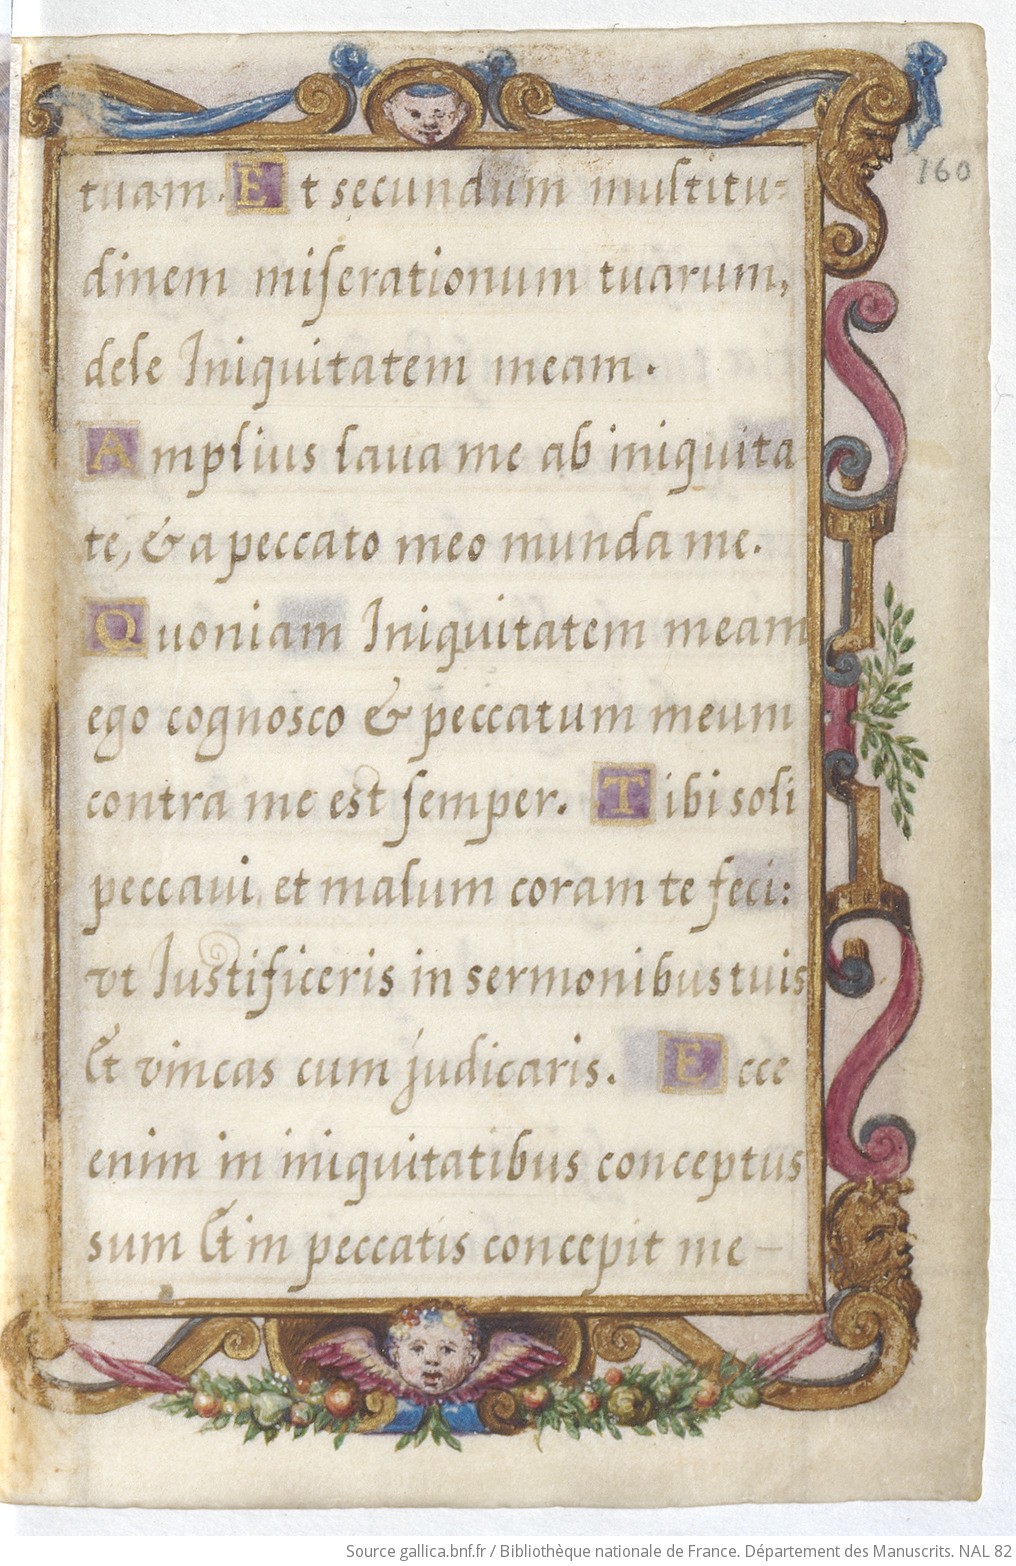 tuam. Et secundum multitu=
dinem miserationum tuarum,
dele Iniquitatem meam.
Amplius laua me ab iniquita
te, & a peccato meo munda me.
Quoniam Iniquitatem meam
ego cognosco & peccatum meum
contra me est semper. Tibi soli
peccaui, et malum coram te feci:
vt Iustificeris in sermonibus tuis
Et vincas cum judicaris. Ecce
enim in iniquitatibus conceptus
sum Et in peccatis concepit me —
160
Source gallica.bnf.fr / Bibliothèque nationale de France. Département des Manuscrits. NAL 82